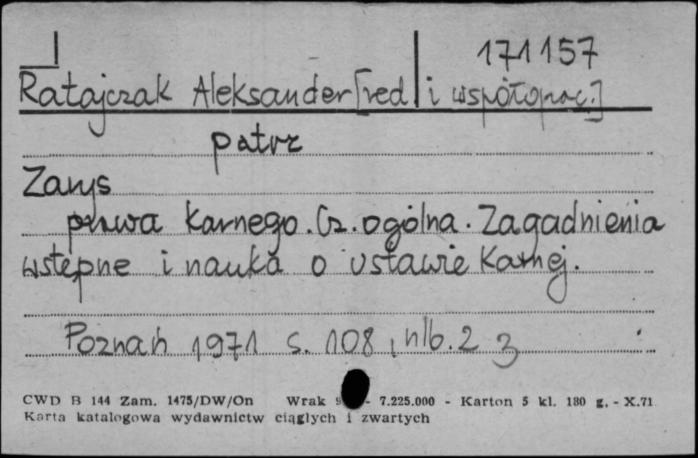 171157
Ratajczak Aleksander [red i współoprac.]
patrz
Zarys
prawa karnego. Cz. ogólna. Zagadnienia
wstępne i nauka o ustawie karnej.
Poznań 1971 s. 108, nlb. 2 3
CWD B 144 Zam. 1475/DW/On Wrak - 7.225.000 - Karton 5 kl. 180 g. - X.71
Karta katalogowa wydawnictw ciągłych i zwartych